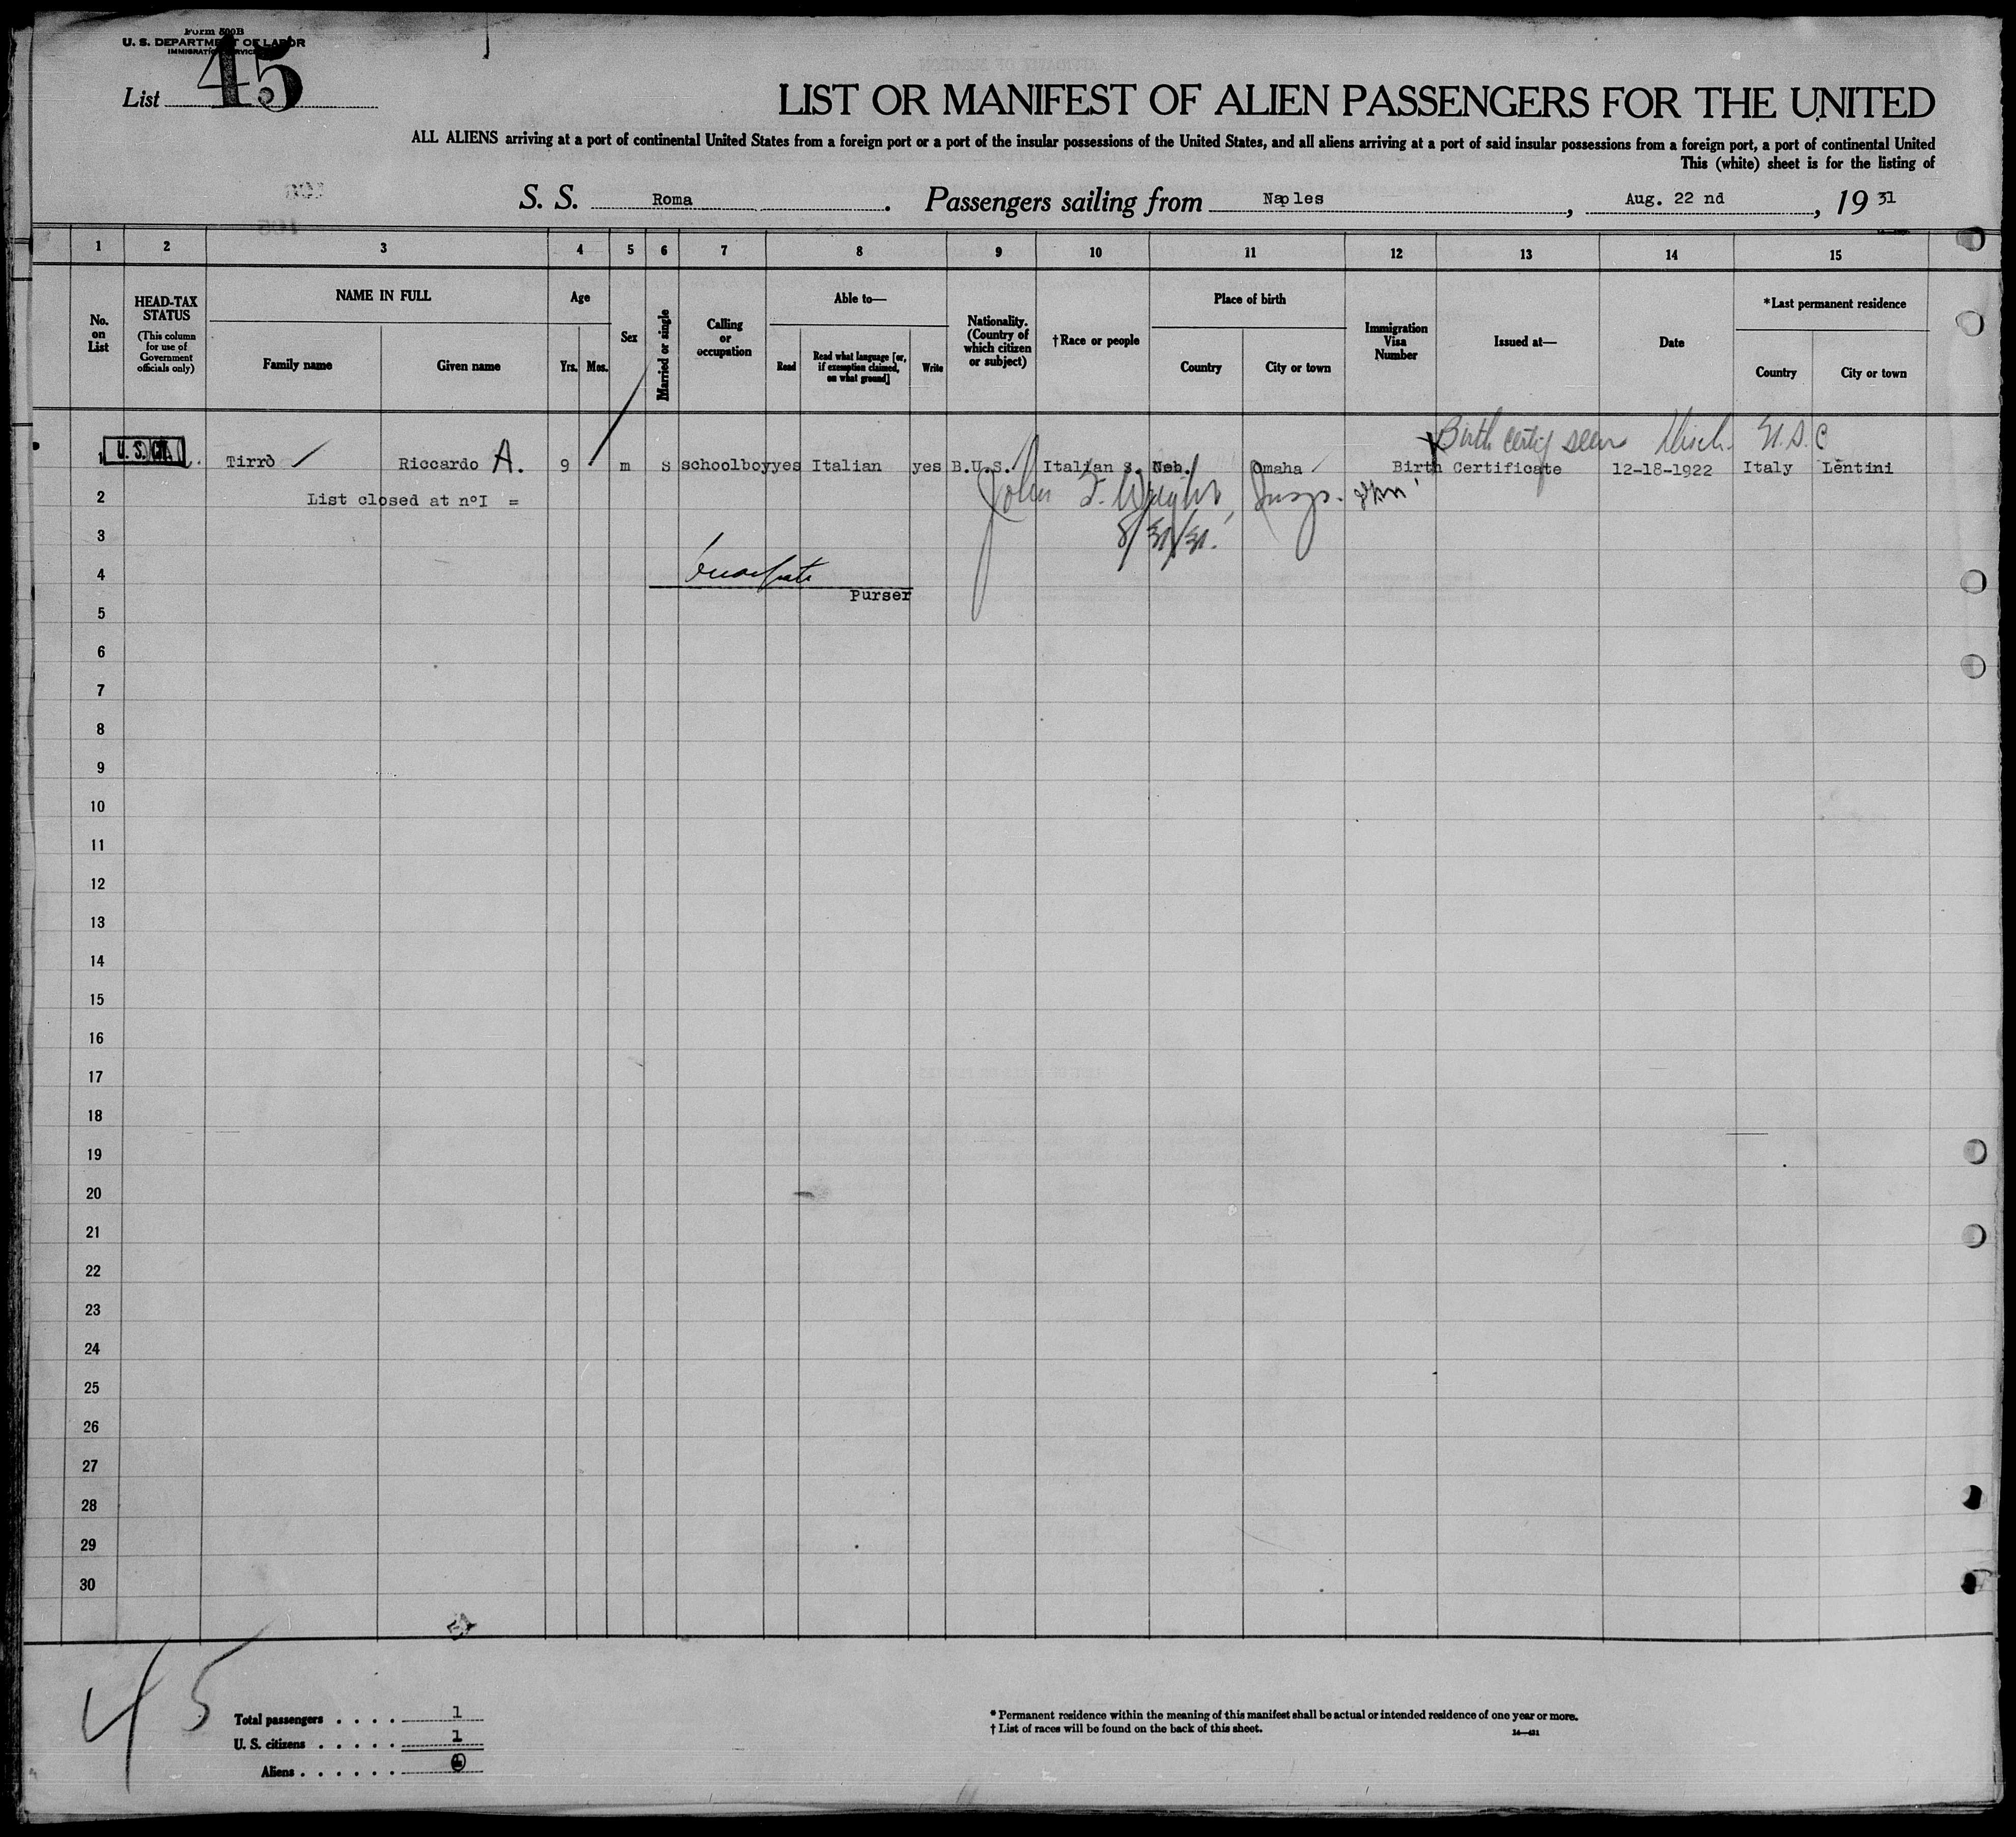 Form 500B
U. S. DEPARTMENT OF LABOR
IMMIGRATION SERVICE
List 45
LIST OR MANIFEST OF ALIEN PASSENGERS FOR THE UNITED
ALL ALIENS arriving at a port of continental United States from a foreign port or a port of the insular possessions of the United States, and all aliens arriving at a port of said insular possessions from a foreign port, a port of continental United
This (white) sheet is for the listing of
S. S. Roma. Passengers sailing from Naples, Aug. 22 nd, 19 31
1 2 3 4 5 6 7 8 9 10 11 12 13 14 15
No. on List
HEAD-TAX STATUS
(This column for use of Government officials only)
NAME IN FULL
Family name Given name
Age
Yrs. Mos.
Sex
Married or single
Calling or occupation
Able to—
Read
Read what language [or, if exemption claimed, on what ground]
Write
Nationality. (Country of which citizen or subject)
†Race or people
Place of birth
Country City or town
Immigration Visa Number
Issued at—
Date
*Last permanent residence
Country City or town
Birth certif seen U.S.C
1 U.S. Tirrò Riccardo A. 9 m s schoolboy yes Italian yes B.U.S. Italian s. Neb. Omaha Birth Certificate 12-18-1922 Italy Lentini
2 List closed at n°I =
John T. Wright, Insp.
3 8/31/31.
4
Purser
5
6
7
8
9
10
11
12
13
14
15
16
17
18
19
20
21
22
23
24
25
26
27
28
29
30
45
Total passengers . . . . 1
U. S. citizens . . . . . 1
Aliens . . . . . .
* Permanent residence within the meaning of this manifest shall be actual or intended residence of one year or more.
† List of races will be found on the back of this sheet.
14—431